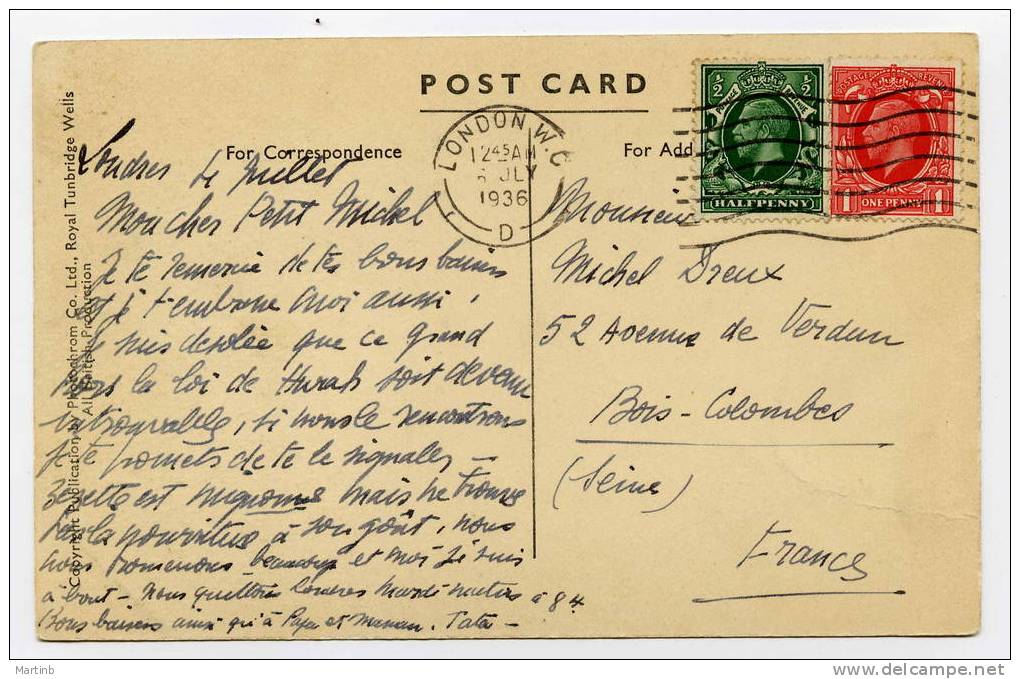 POST CARD
For Correspondence
For Add
LONDON W.C
12 45 AM
JLY
1936
D
½ ½
POSTAGE REVENUE
HALFPENNY
POSTAGE REVENUE
1 ONE PENNY 1
Copyright Publication by Photochrom Co. Ltd., Royal Tunbridge Wells
All British Production
Londres 4 Juillet
Mon cher Petit Michel
Je te remercie de tes bons baisers
et je t'embrasse moi aussi,
Je suis desolée que ce grand
hors la loi de soit devenu
introuvable, si nous le rencontrons
je te promets de te le signaler -
Zezette est mignonne mais ne trouve
pas la nourriture à son goût, nous
nous promenons beaucoup et moi je suis
à bout - nous quittons Londres Mardi matin à 8 h
Bons baisers ainsi qu'à Papa et Maman. Tata -
Monsieur
Michel Dreux
52 Avenue de Verdun
Bois-Colombes
(Seine)
France
Martinb
delcampe.net